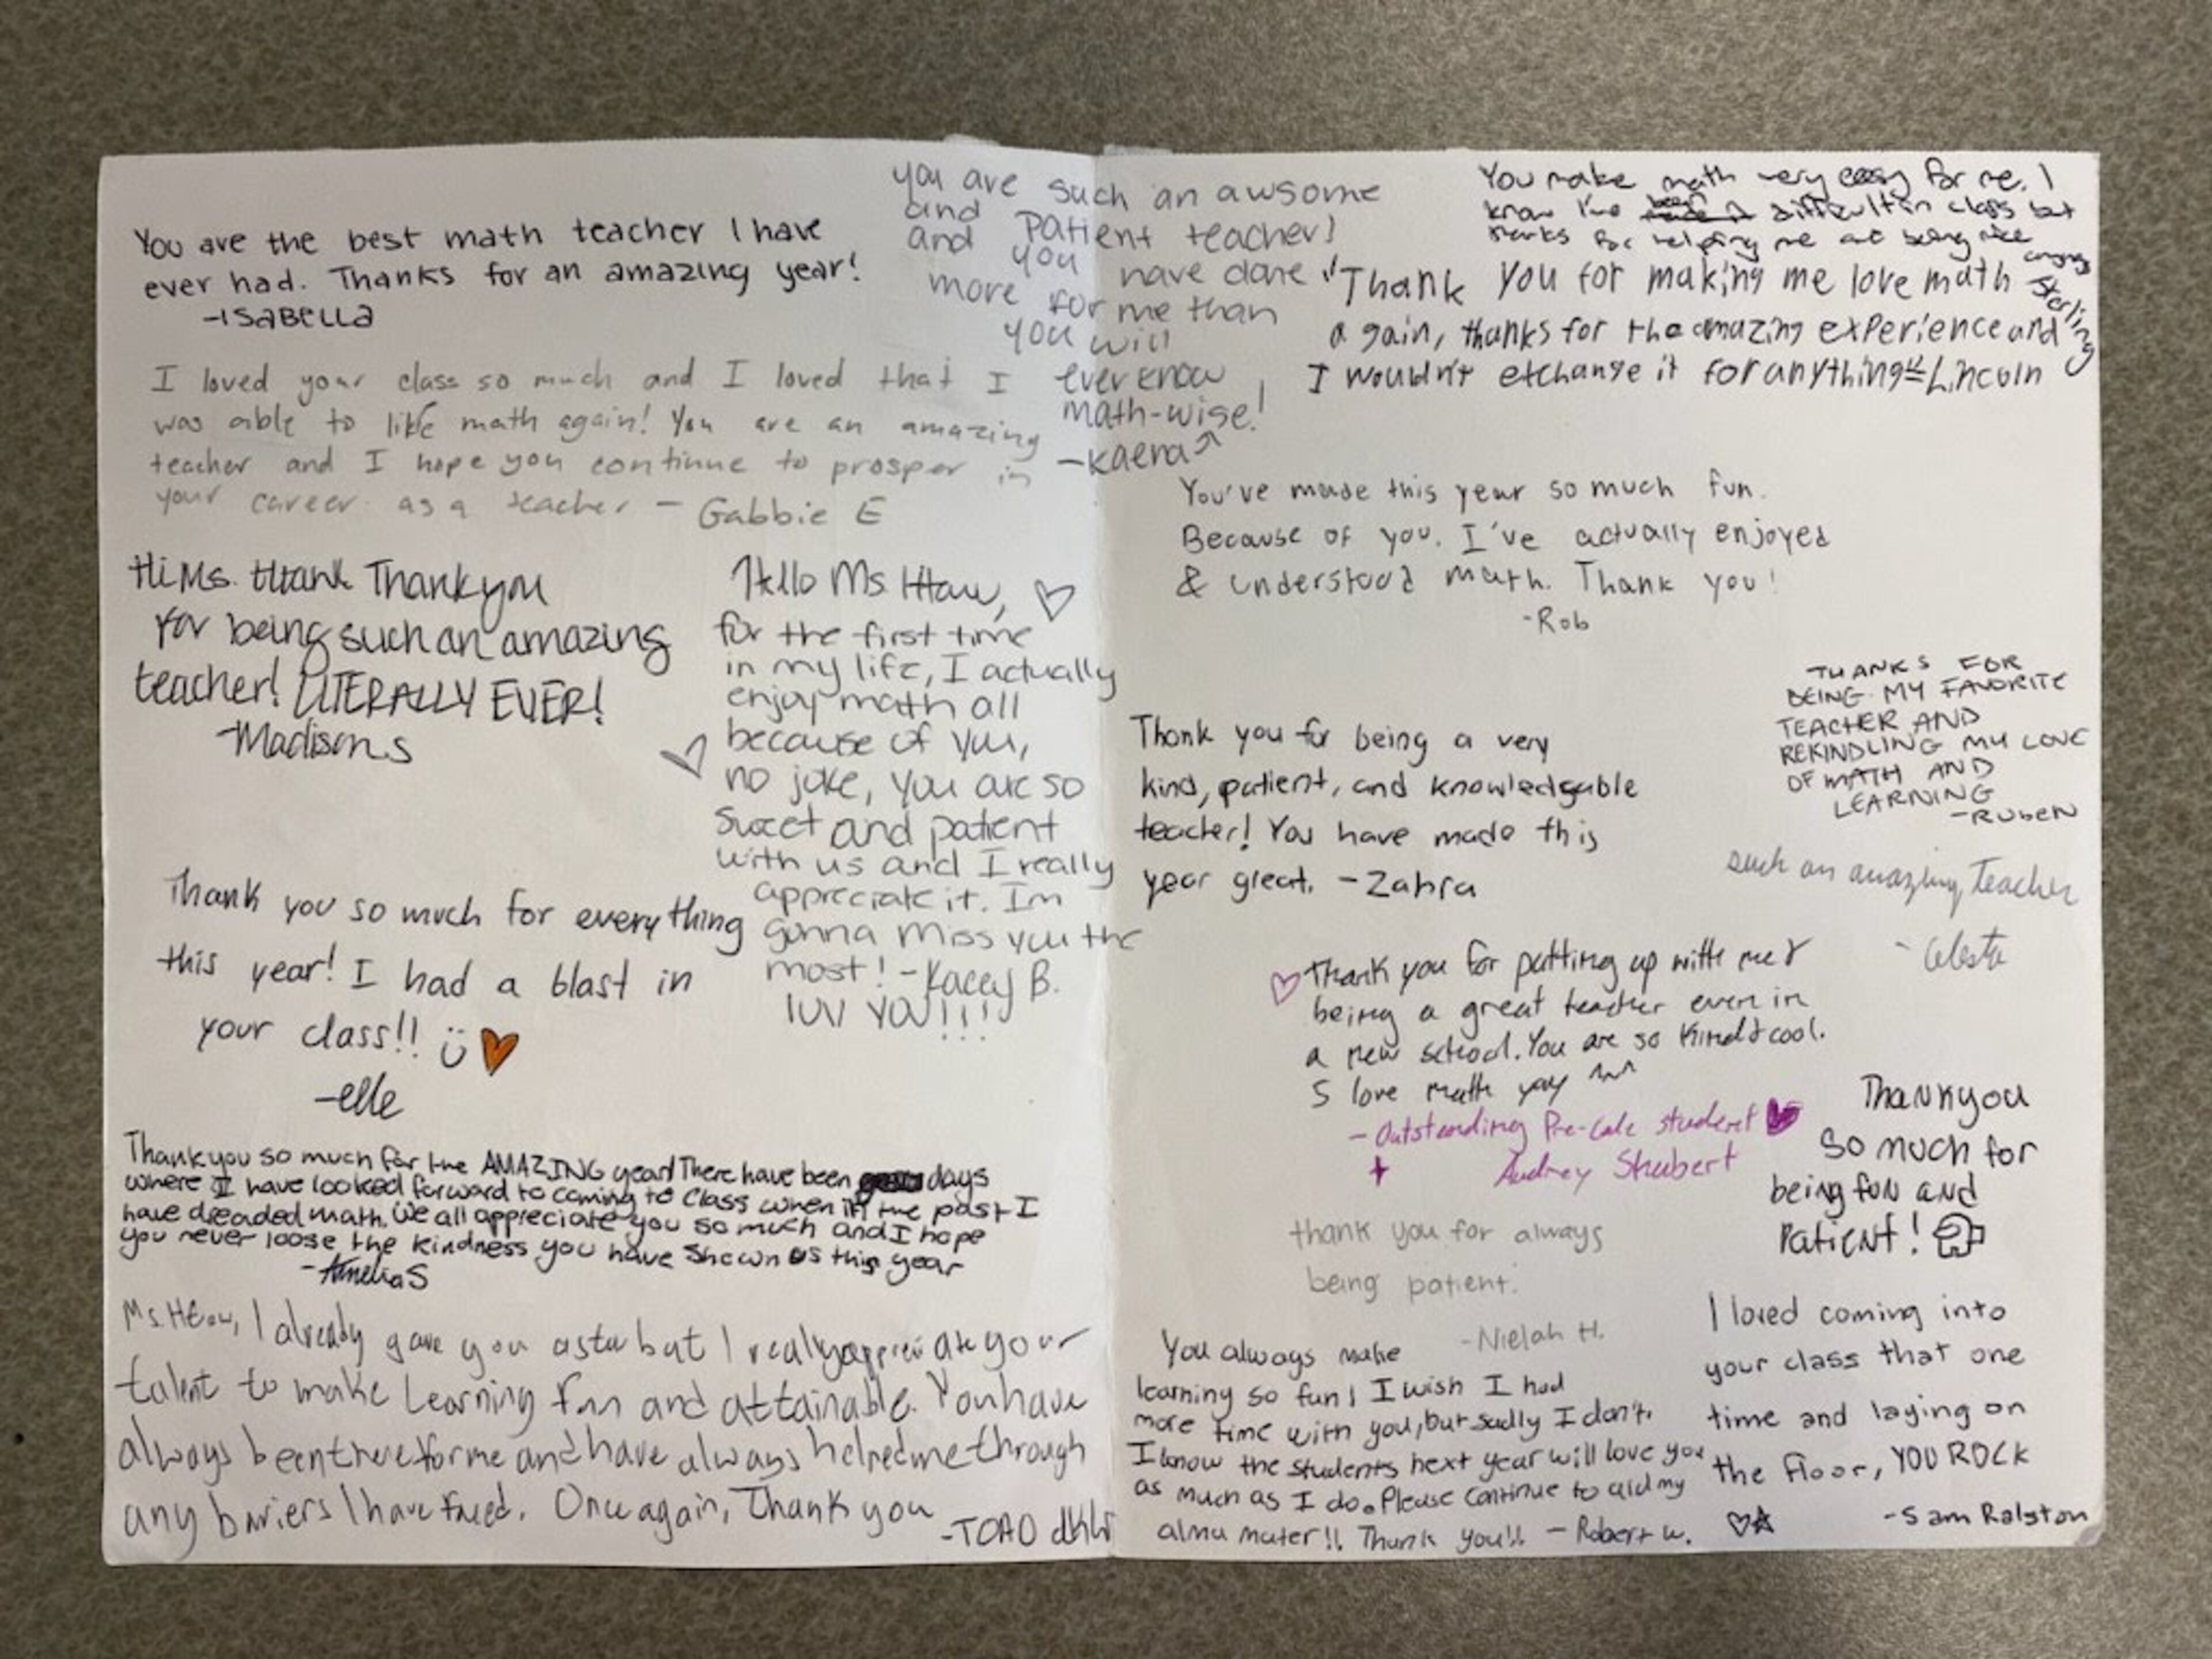 You are the best math teacher I have
ever had. Thanks for an amazing year!
-ISABELLA
you are such an awsome
and patient teacher!
and you have done
more for me than
you will
ever know
math-wise!
-Kaena
I loved your class so much and I loved that I
was able to like math again! You are an amazing
teacher and I hope you continue to prosper in
your career as a teacher - Gabbie E
Hi Ms. Thank you
for being such an amazing
teacher! LITERALLY EVER!
-Madison S
Hello Ms. Htaw,
for the first time
in my life, I actually
enjoy math all
because of you,
no joke, you are so
sweet and patient
with us and I really
appreciate it. Im
gonna miss you the
most! -Kacey B.
luv YOU!!!!
Thank you so much for everything
this year! I had a blast in
your class!!
-elle
Thank you so much for the AMAZING year! There have been days
where I have looked forward to coming to class when in the past I
have dreaded math. We all appreciate you so much and I hope
you never loose the kindness you have shown us this year
-Amelia S
Ms. I already gave you a but I really appreciate your
talent to make learning fun and attainable. You have
always been there for me and have always helped me through
any bariers I have faced. Once again, Thank you
You make math very easy for me. I
know I've been difficult in class but
thanks for helping me and being nice
Sterling
"Thank you for making me love math
again, thanks for the amazing experience and
I wouldn't etchange it for anything" - Lincoln
You've made this year so much fun.
Because of you. I've actually enjoyed
& understood math. Thank you!
-Rob
THANKS FOR
BEING MY FAVORITE
TEACHER AND
REKINDLING MY LOVE
OF MATH AND
LEARNING
-RUBEN
Thank you for being a very
kind, patient, and knowledgable
teacher! You have made this
year great. - Zahra
such an amazing teacher
- Celeste
Thank you for putting up with me &
being a great teacher even in
a new school. You are so kind & cool.
I love math yay
- Outstanding Pre-Calc student
Audrey Shubert
Thank you
so much for
being fun and
Patient!
thank you for always
being patient.
-Nielah H.
You always make
learning so fun! I wish I had
more time with you, but sadly I don't.
I know the students next year will love you
as much as I do. Please continue to aid my
alma mater!! Thank you!! - Robert W.
I loved coming into
your class that one
time and laying on
the floor, YOU ROCK
-Sam Ralston